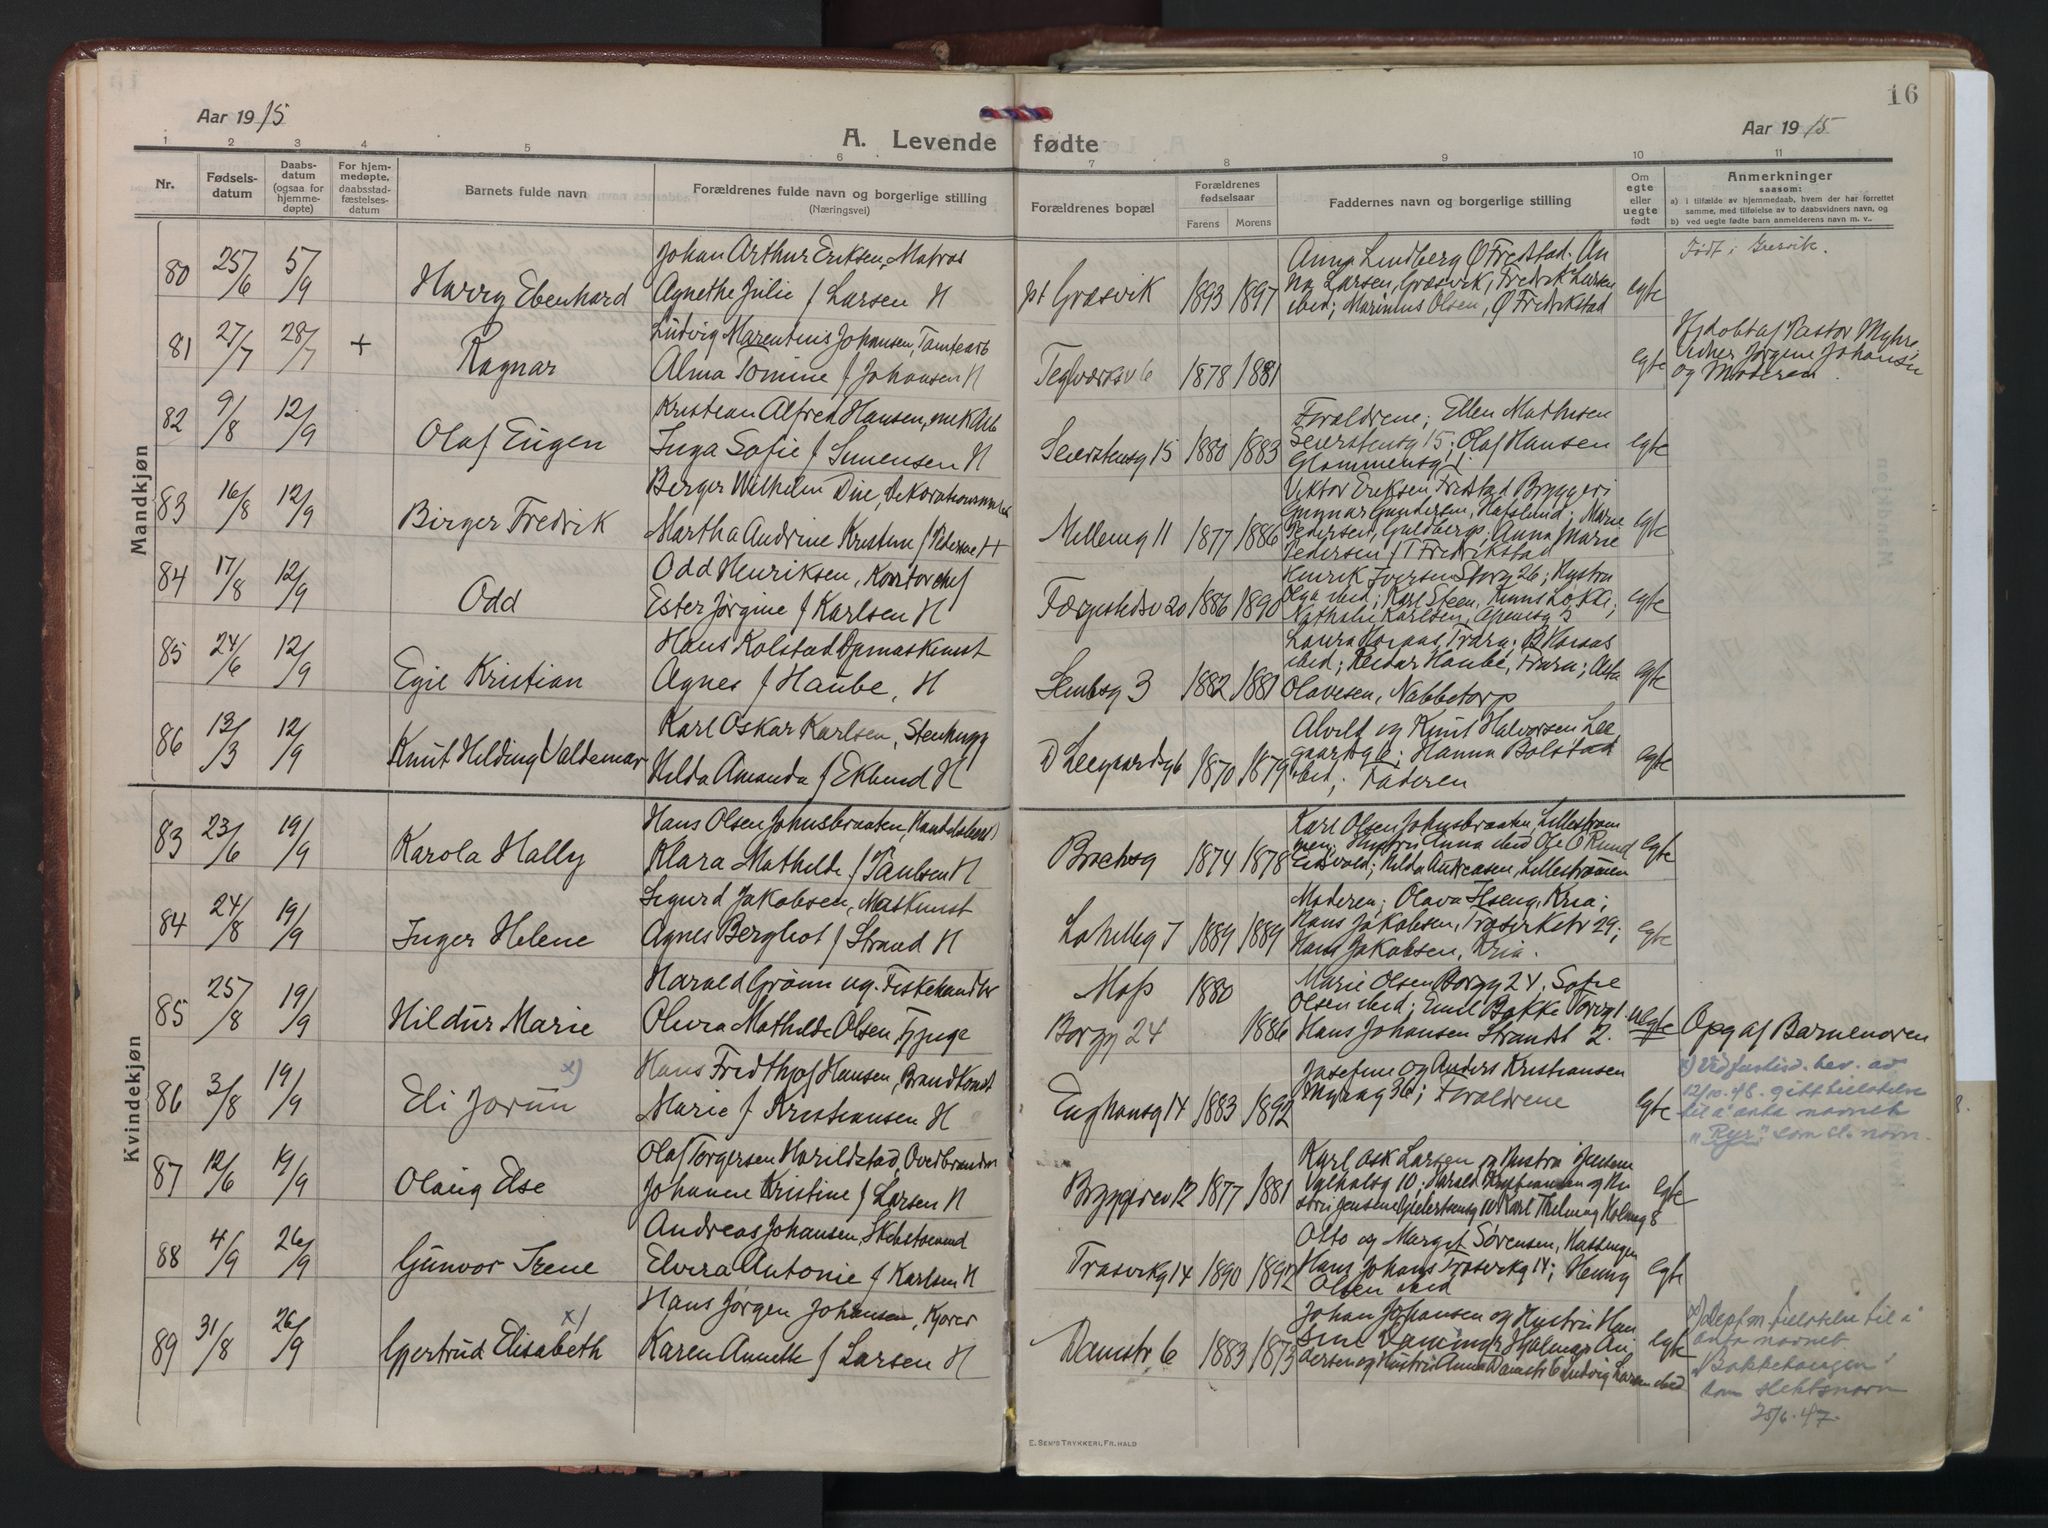 16
Aar 1915
A. Levende fødte
Aar 1915
1 2 3 4 5 6 7 8 9 10 11
Nr.
Fødsels-
datum
Daabs-
datum
(ogsaa for
hjemme-
døpte)
For hjem-
medøpte,
daabsstad-
fæstelses-
datum
Barnets fulde navn
Forældrenes fulde navn og borgerlige stilling
(Næringsvei)
Forældrenes bopæl
Forældrenes
fødselsaar
Farens Morens
Faddernes navn og borgerlige stilling
Om
egte
eller
uegte
født
Anmerkninger
saasom:
a) i tilfælde av hjemmedaab, hvem der har forrettet
samme, med tilføielse av to daabsvidners navn, og
b) ved uegte fødte barn anmelderens navn m. v..
Mandkjøn
80 25/6 5/9 Harry Ebenhard
Johan Arthur Eriksen, Matros
Agnethe Julie f Larsen H
pt Græsvik 1893 1897
Anna Lindberg Ø Fredstad. An
na Larsen, Græsvik, Fredrik Larsen
ibid; Marinius Olsen, Ø Fredrikstad
egte
Født i Gresvik.
81 27/7 28/7 + Ragnar
Ludvig Marentius Johansen, Tomtearb
Alma Tomine f Johansen H
Teglværksv 6 1878 1881
egte
Hj.døbt af Pastor Myhre
Vidner Jørgine Johansen
og Moderen.
82 9/8 12/9 Olaf Eugen
Kristian Alfred Hansen, mek Arb
Inga Sofie f Simensen H
Seierstensg 15 1880 1883
Forældrene; Ellen Mathisen
Seierstensg 15; Olaf Hansen
Glommensg
egte
83 16/8 12/9 Birger Fredrik
Berger Wilhelm Due, Dekorationsmaler
Martha Andrine Kristine f Pedersen H
Mellemg 11 1877 1886
Viktor Eriksen Fredstad Bryggeri
Gunnar Gundersen, Hafslund; Marie
Pedersen, Guldbergs; Anna Marie
Pedersen f T Fredrikstad
egte
84 17/8 12/9 Odd
Odd Henriksen, Kontorchef
Ester Jørgine f Karlsen H
Færgestedsv 20 1886 1890
Henrik Iversen Storg 26; Hystru
Olga ibid; Karl Steen, Kunns Løkke;
Nathalie Karlsen, Apenesg 5
egte
85 24/6 12/9 Egil Kristian
Hans Kolstad Dpmaskinist
Agnes f Haube, H
Lembsg 3 1882 1881
Laura Horaas, Trara; B Horaas
ibid; Reidar Haube, Trara; Asta
Olavesen, Nabbetorp
egte
86 13/3 12/9 Knut Hilding Valdemar
Karl Oskar Karlsen, Stenhugg
Hilda Amanda f Eklund H
D Leegaardsg 6 1870 1879
Alvild og Knut Halvorsen Lee
gaardsg 6; Hanna Bolstad
ibid; Faderen
egte
Kvindekjøn
83 23/6 19/9 Karola Hally
Hans Olsen Johnsbraaten, Handelsbest
Klara Mathilde f Paulsen H
Brochsg 1874 1878
Karl Olsen Johnsbraaten, Lillestrøm
men; Hystru Anna ibid Ole O Rund
Eidsvold; Hilda Andreasen, Lillestrømmen
egte
84 24/8 19/9 Inger Helene
Sigurd Jakobsen, Maskinist
Agnes Bergliot f Strand H
Lahelleg 7 1889 1889
Moderen; Olava Hseng, Kria;
Hans Jakobsen, Trosvikstr 29;
Hans Jakobsen, Kria.
egte
85 25/8 19/9 Hildur Marie
Harald Grønn ug. Fiskehandler
Olvira Mathilde Olsen, Tjpige
Moss 1880
Borgg 24 1886
Marie Olsen Borgg 24, Sofie
Olsen ibid; Emil Bakke Torvg 1.
Hans Johansen Strandst 2.
uegte
Opg af Barnemoren
86 3/8 19/9 Eli Jorun x)
Hans Fredthjof Hansen, Brandkonst
Marie f Kristiansen H
Enghausg 14 1883 1892
Josefine og Anders Kristiansen
Nygaag 36; Forældrene
egte
x) Ved Justisd. bev. av
12/10.48. gitt tillatelse
til å anta navnet
"Ryr" som sl.navn.
87 12/6 19/9 Olaug Else
Olaf Torgersen Harildstad, Ovedbrandm
Johanne Kristine f Larsen H
Bryggeriv 12 1877 1881
Karl Osk Larsen og Hustru Jensine
Valhalsg 10; Harald Kristiansen og Hu
stru Jensine Gjelertsensg 10 Karl Thelmag Holmeg 8
egte
88 4/9 26/9 Gunvor Irene
Andreas Johansen, Skibstømmd
Elvira Antonie f Karlsen H
Trosvikg 14 1890 1892
Otto og Margit Sørensen, Hassengen
Hans Johans Trosvikg 14; Henny
Olsen ibid
egte
89 31/8 26/9 Gjertrud Elisabeth x)
Hans Jørgen Johansen, Kjører
Karen Annette f Larsen H
Damstr. 6 1883 1873
Johan Johansen og Hystru Han
sine Damingr Hjalmar An
dersen og Hustru Anna Damstr 6 Ludvig Larsen ibid
egte
x) Dept m. tillatelse til å
anta navnet
"Bakkehaugen"
som slektsnavn
25/6.47.
E. SEM'S TRYKKERI, FR. HALD